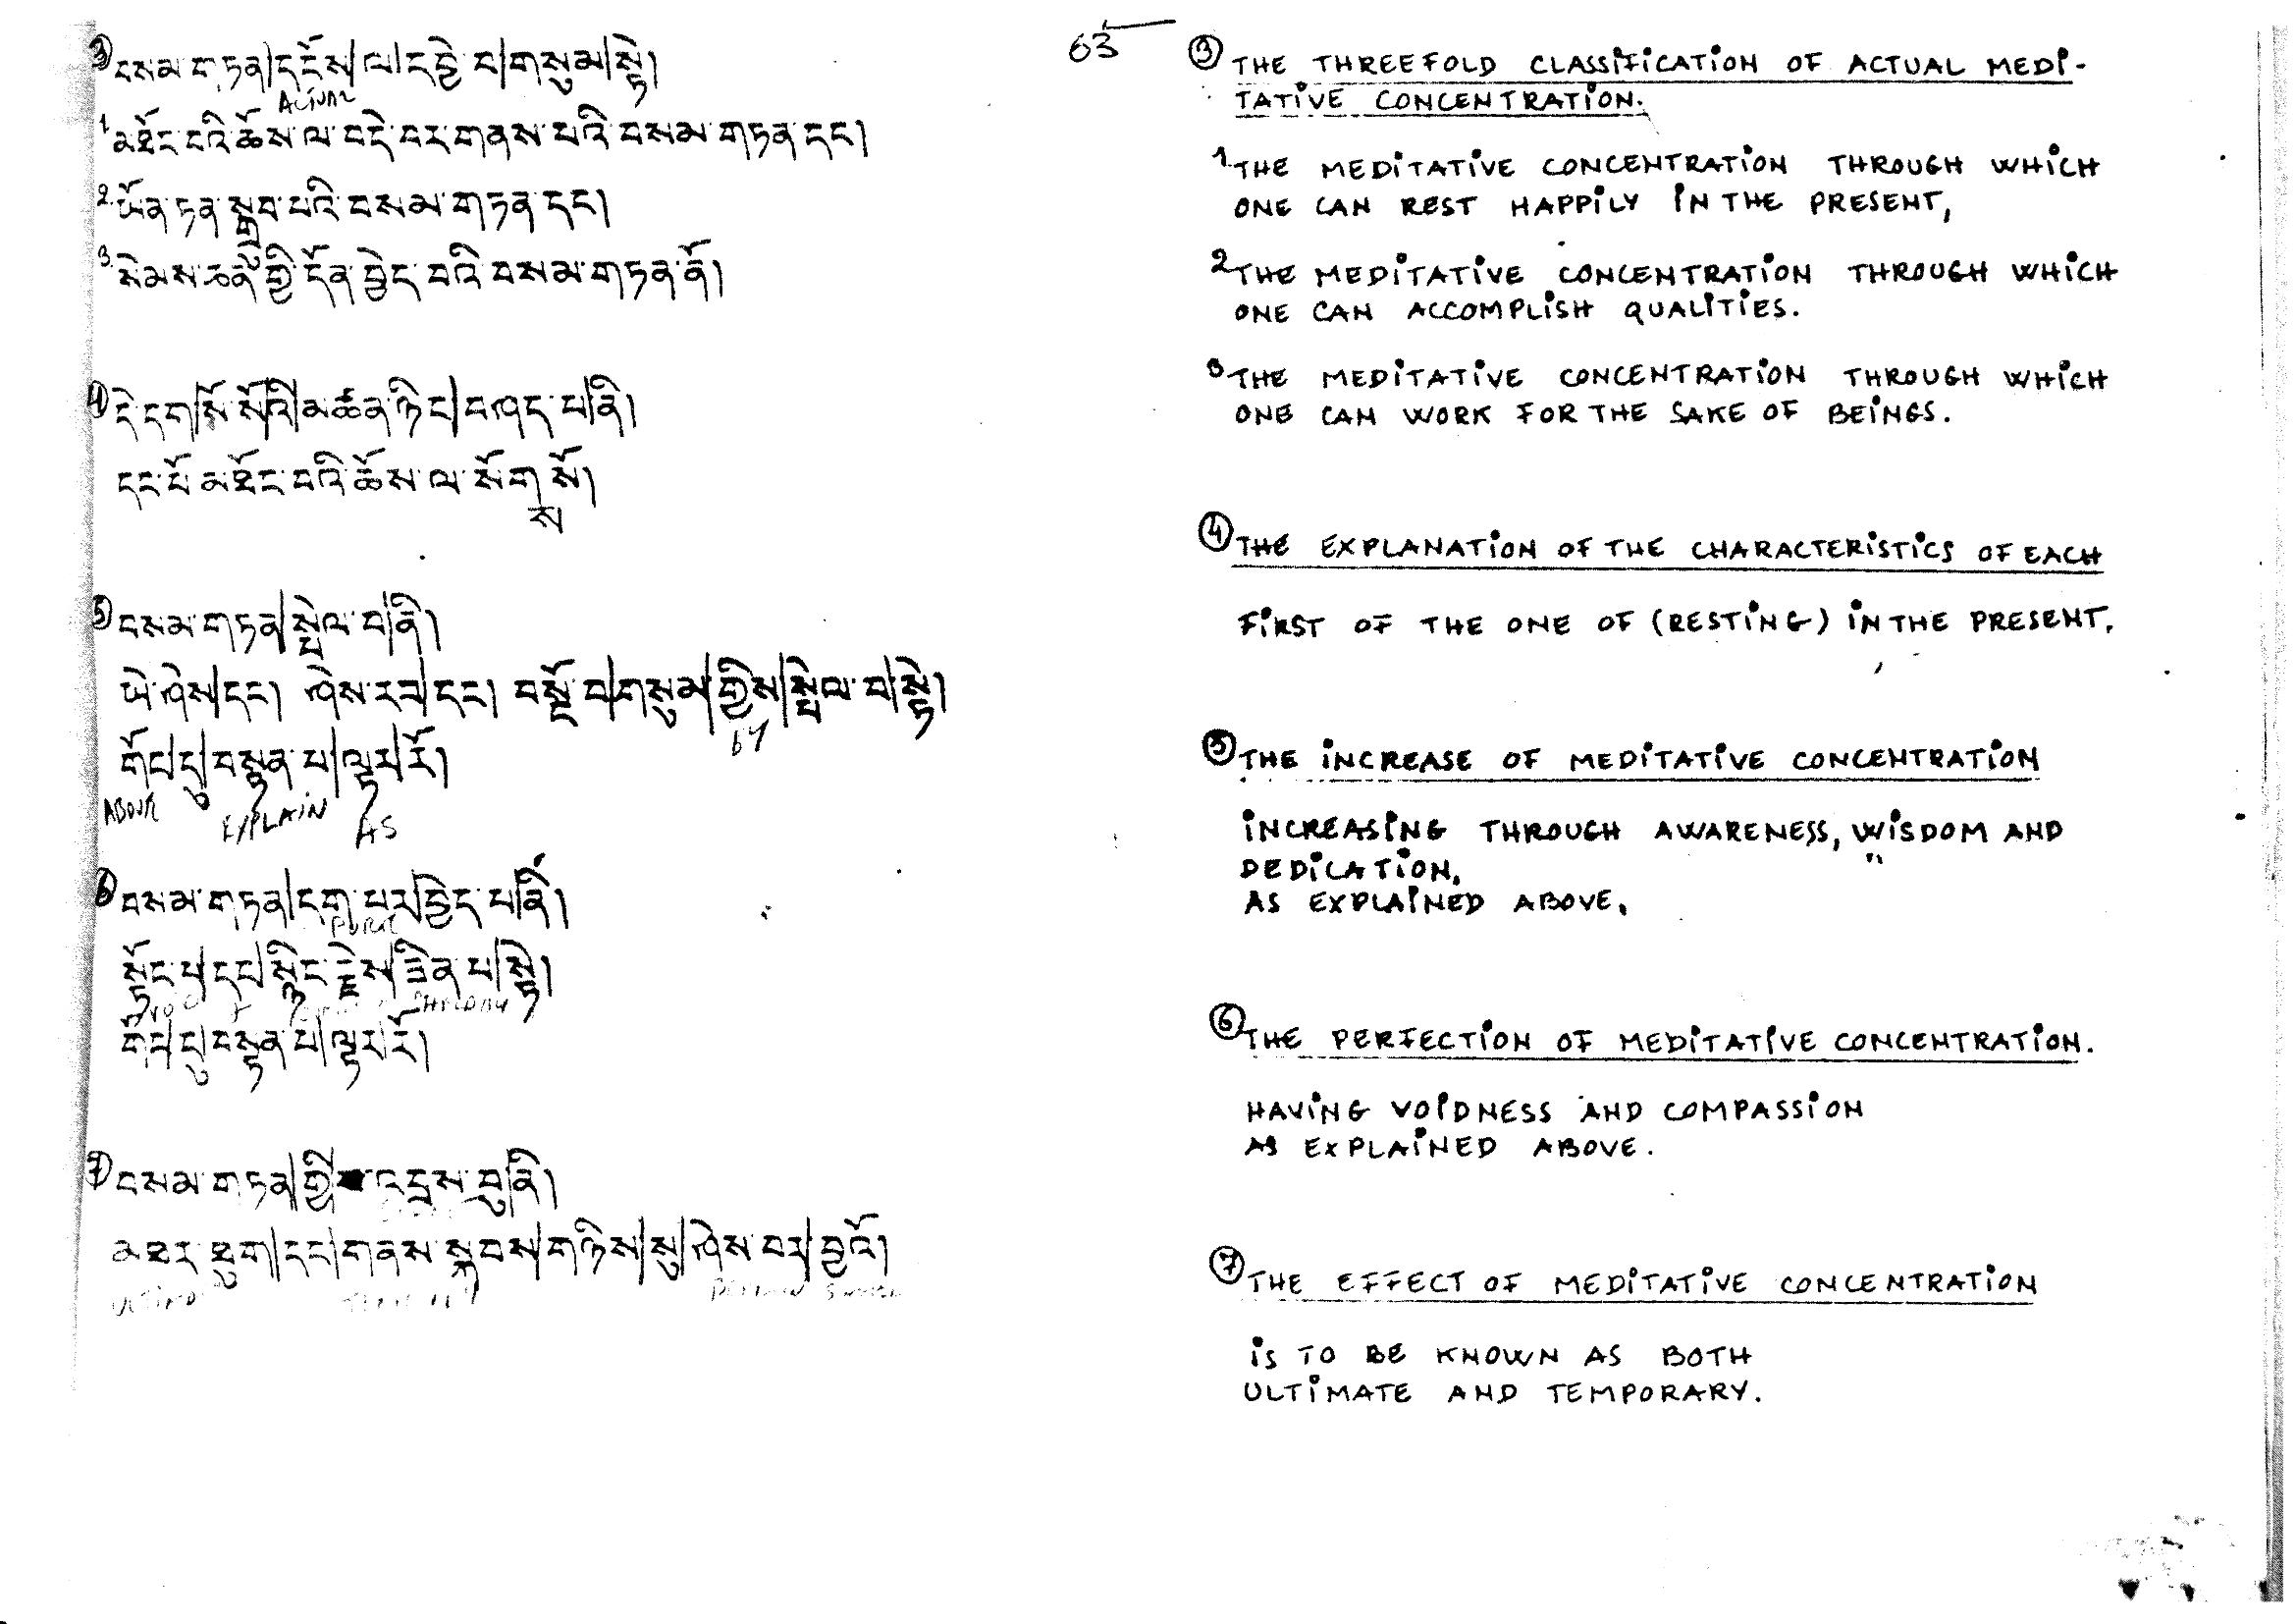 ③ བསམ་གཏན།དངོས།ལ།དབྱེ་བ།གསུམ།སྟེ།
ACTUAL
1 མཐོང་བའི་ཆོས་ལ་བདེ་བར་གནས་པའི་བསམ་གཏན་དང།
2. ཡོན་ཏན་སྒྲུབ་པའི་བསམ་གཏན་དང།
3. སེམས་ཅན་གྱི་དོན་བྱེད་པའི་བསམ་གཏན་ནོ།
④ དེ་དག།སོ་སོའི།མཚན་ཉིད།བཤད་པ།ནི།
དང་པོ་མཐོང་བའི་ཆོས་ལ་སོགས་སོ།
⑤ བསམ་གཏན།སྤེལ་བ།ནི།
ཡེ་ཤེས།དང། ཤེས་རབ།དང། བསྔོ་བ།གསུམ།གྱིས།སྤེལ་བ།སྟེ།
by
གོང།དུ།བསྟན་པ།ལྟར།རོ།
ABOVE EXPLAIN AS
⑥ བསམ་གཏན།དག་པར།བྱེད་པ།ནི།
PURE
སྟོང་པ།དང།སྙིང་རྗེས།ཟིན་པ།སྟེ།
གོང།དུ།བསྟན་པ།ལྟར།རོ།
⑦ བསམ་གཏན།གྱི་འབྲས་བུ།ནི།
མཐར་ཐུག།དང།གནས་སྐབས།གཉིས།སུ།ཤེས་བར།བྱའོ།
63
③ THE THREEFOLD CLASSIFICATION OF ACTUAL MEDI-
TATIVE CONCENTRATION.
1. THE MEDITATIVE CONCENTRATION THROUGH WHICH
ONE CAN REST HAPPILY IN THE PRESENT,
2 THE MEDITATIVE CONCENTRATION THROUGH WHICH
ONE CAN ACCOMPLISH QUALITIES.
3 THE MEDITATIVE CONCENTRATION THROUGH WHICH
ONE CAN WORK FOR THE SAKE OF BEINGS.
④ THE EXPLANATION OF THE CHARACTERISTICS OF EACH
FIRST OF THE ONE OF (RESTING) IN THE PRESENT.
⑤ THE INCREASE OF MEDITATIVE CONCENTRATION
INCREASING THROUGH AWARENESS, WISDOM AND
DEDICATION,
AS EXPLAINED ABOVE.
⑥ THE PERFECTION OF MEDITATIVE CONCENTRATION.
HAVING VOIDNESS AND COMPASSION
AS EXPLAINED ABOVE.
⑦ THE EFFECT OF MEDITATIVE CONCENTRATION
IS TO BE KNOWN AS BOTH
ULTIMATE AND TEMPORARY.